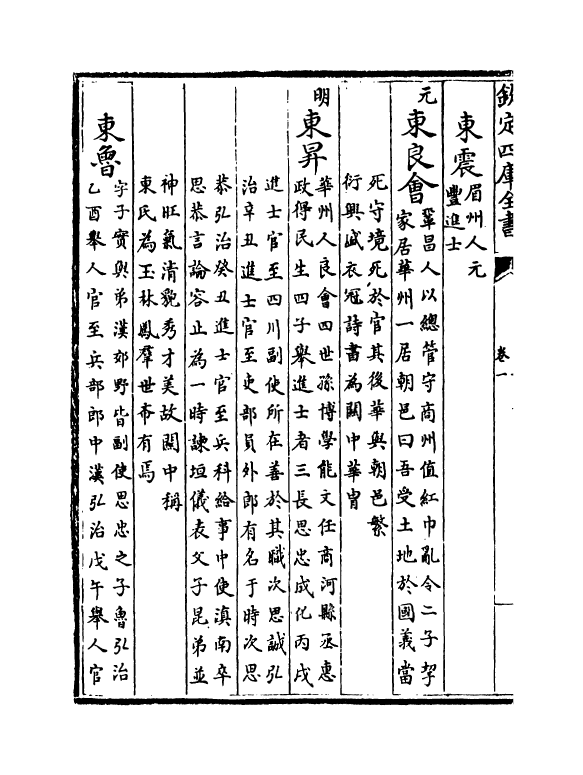 欽定四庫全書 卷一
東震眉州人元
豐進士
元
東良會鞏昌人以總管守商州值紅巾亂令二子挈
家居華州一居朝邑曰吾受土地於國義當
死守境死於官其後華與朝邑繁
衍興盛衣冠詩書為關中華胄
明
東昇華州人良會四世孫博學能文任商河縣丞惠
政得民生四子舉進士者三長思忠成化丙戌
進士官至四川副使所在善於其職次思誠弘
治辛丑進士官至吏部員外郎有名于時次思
恭弘治癸丑進士官至兵科給事中使滇南卒
思恭言論容止為一時諫垣儀表父子昆弟並
神旺氣清貌秀才美故關中稱
東氏為玉林鳳羣世希有焉
東魯字子實與弟漢郊野皆副使思忠之子魯弘治
乙酉舉人官至兵部郎中漢弘治戊午舉人官